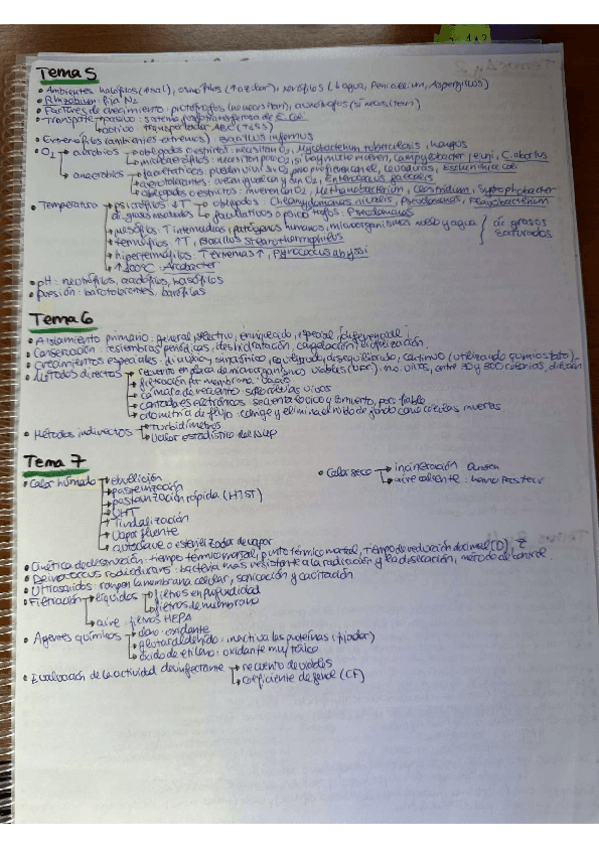 Tema 5
• Ambientes halófilos (↑sal), osmófilos (↑azúcar), xerófilos (↓agua, Penicillium, Aspergillus)
• Rhizobium: fija N2
• Factores de crecimiento: protótrofos (no necesitan), auxótrofos (si necesitan)
• Transporte → pasivo: sistema fosfotransferasa de E. coli
↳ activo: transportador ABC (TRSS)
• Extremófilos (ambientes extremos): Bacillus infernus
• O2 → aerobios → obligados o estrictos: necesitan O2, Mycobacterium tuberculosis, hongos
↳ microaerófilos: necesitan poco O2, si hay mucho mueren, Campylobacter jejuni, C. abortus
↳ anaerobios → facultativos: pueden vivir sin O2, pero prefieren con él, levaduras, Escherichia coli
→ aerotolerantes: con y sin O2, Enterococcus faecalis
↳ obligados o estrictos: mueren con O2, Methanobacterium, Clostridium, Syntrophobacter
• Temperatura → psicrófilos ↓T → obligados: Chlamydomonas nivalis, Pseudomonas, Flavobacterium
ác. grasos insaturados ↳ facultativos o psicótrofos: Pseudomonas
→ mesófilos: T intermedias, patógenos humanos, microorganismos suelo y agua
→ termófilos: ↑T, Bacillus stearothermophilus
ác. grasos saturados
→ hipertermófilos: T extremas ↑, Pyrococcus abyssi
↳ ↑100°C: Arcobacter
• pH: neutrófilos, acidófilos, basófilos
• Presión: barotolerantes, barófilos
Tema 6
• Aislamiento primario: general, selectivo, enriquecido, especial, [diferencial]
• Conservación: resiembras periódicas, deshidratación, congelación, liofilización
• Crecimientos especiales: diauxico, sincrónico, equilibrado, desequilibrado, continuo (utilizando quimiostato)
• Métodos directos → recuento en placa de microorganismos viables (UFC): mo. vivos, entre 30 y 300 colonias, dilución
→ filtración por membrana: vacío
→ cámara de recuento: solo células vivos
→ contadores electrónicos: se cuenta todo vivo y muerto, poco fiable
↳ citometría de flujo: coge y elimina el ruido de fondo como células muertas
• Métodos indirectos → turbidímetros
↳ valor estadístico del NMP
Tema 7
• Calor húmedo → ebullición
→ pasteurización
→ pasteurización rápida (HTST)
→ UHT
→ Tindalización
→ vapor fluente
↳ autoclave o esterilizador de vapor
• Calor seco → incineración: bunsen
↳ aire caliente: horno Pasteur
• Cinética de destrucción: tiempo térmico mortal, punto térmico mortal, tiempo de reducción decimal (D), z
• Deinococcus radiodurans: bacteria más resistente a la radiación y la disecación, método de control
• Ultrasonidos: rompen la membrana celular, sonicación y cavitación
• Filtración → líquidos → filtros en profundidad
↳ filtros de membrana
↳ aire: filtros HEPA
• Agentes químicos → cloro: oxidante
→ glutaraldehído: inactiva las proteínas (fijador)
↳ óxido de etileno: oxidante muy tóxico
• Evaluación de la actividad desinfectante → recuento de viables
↳ coeficiente de fenol (CF)